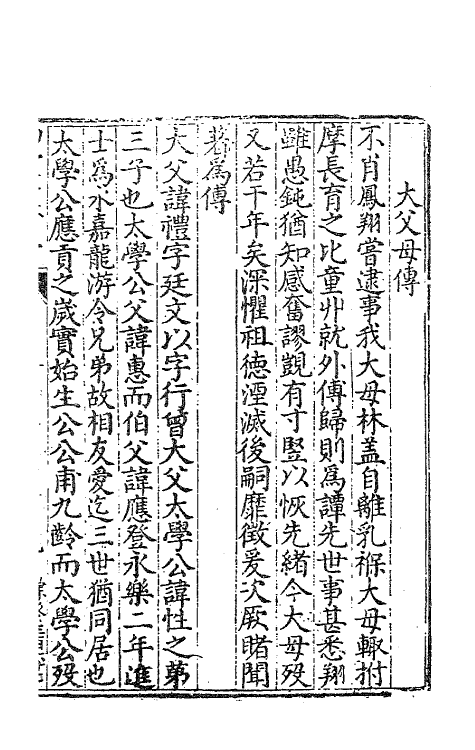 大父母傳
不肖鳳翔嘗逮事我大母林盖自離乳褓大母輙拊
摩長育之比童丱就外傅歸則為譚先世事甚悉翔
雖愚鈍猶知感奮謬覬有寸豎以恢先緒今大母歿
又若干年矣深懼祖德湮滅後嗣靡徵爰次厥睹聞
著為傳
大父諱禮字廷文以字行曾大父太學公諱性之第
三子也太學公父諱惠而伯父諱應登永樂二年進
士為永嘉龍游令兄弟故相友愛迄三世猶同居也
太學公應貢之歲實始生公公甫九齡而太學公歿